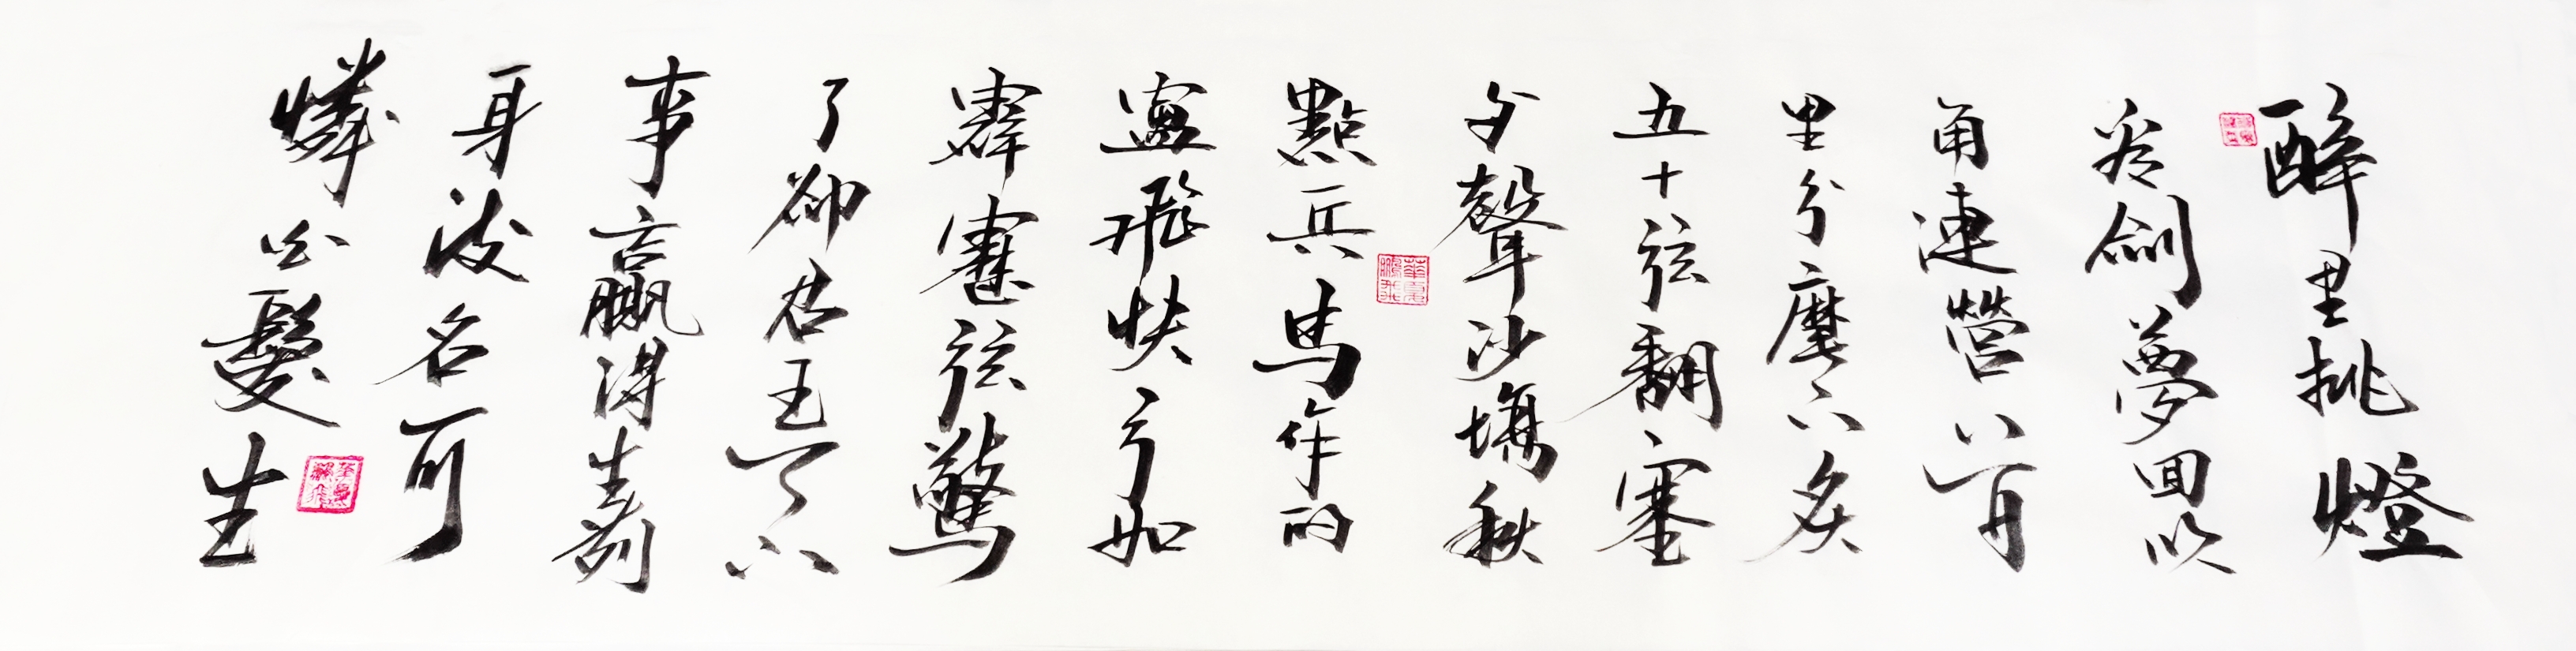 醉里挑燈
看劍夢回吹
角連營八百
里分麾下炙
五十弦翻塞
外聲沙場秋
點兵馬作的
盧飛快弓如
霹靂弦驚
了卻君王天下
事贏得生前
身後名可
憐白髮生